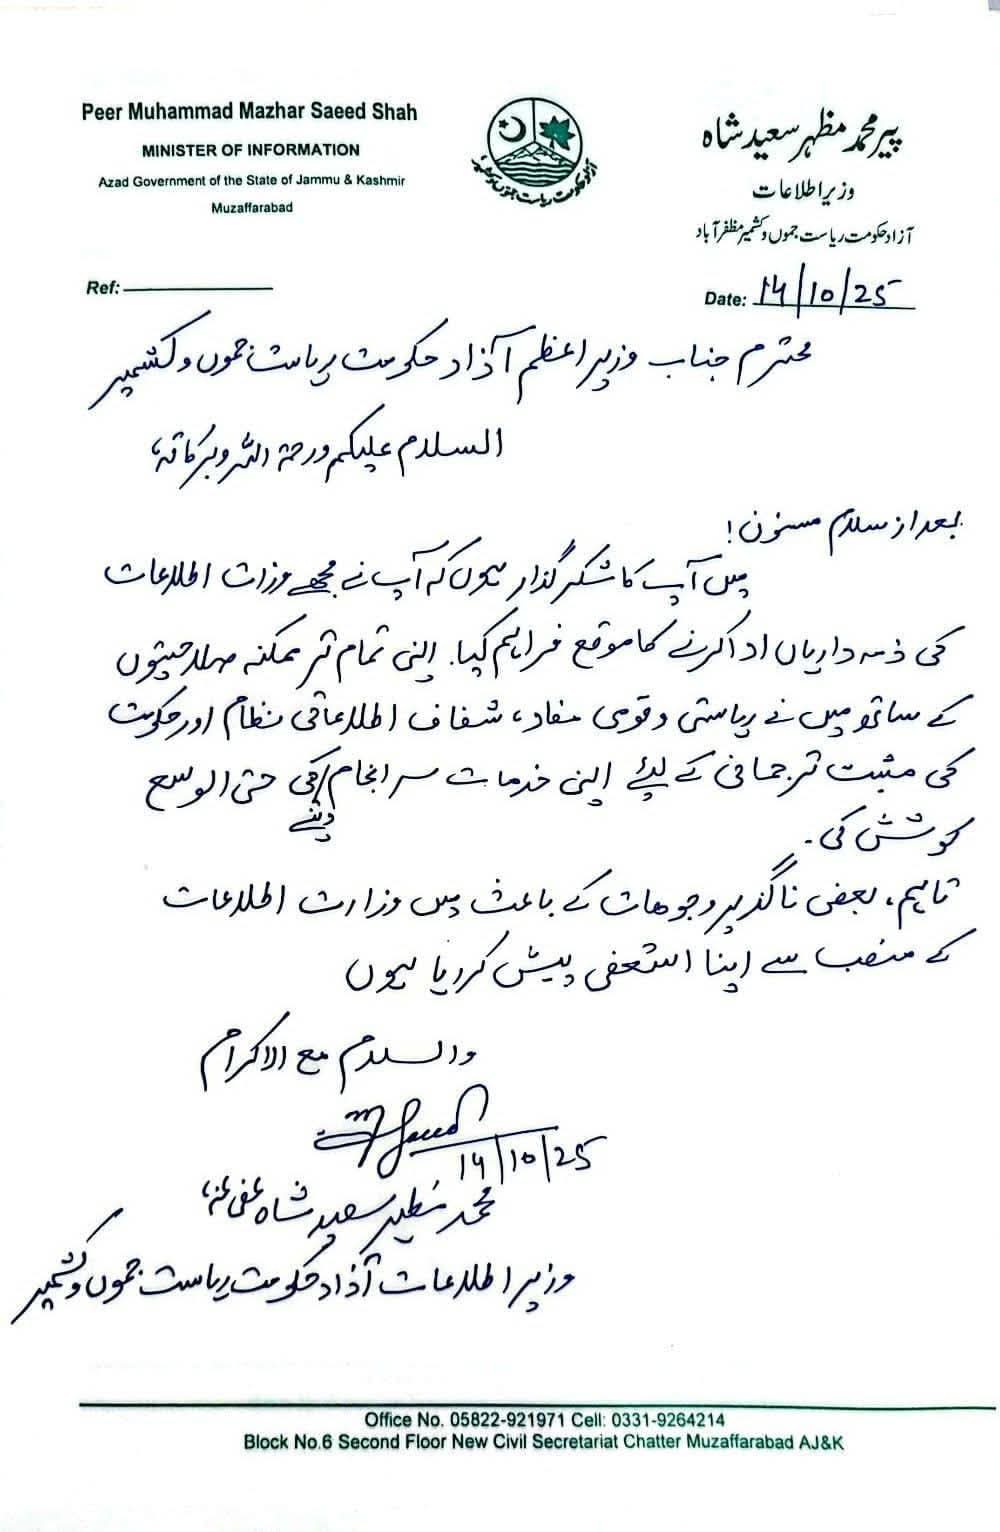 Peer Muhammad Mazhar Saeed Shah
MINISTER OF INFORMATION
Azad Government of the State of Jammu & Kashmir
Muzaffarabad
آزاد حکومت ریاست جموں و کشمیر
پیر محمد مظہر سعید شاہ
وزیر اطلاعات
آزاد حکومت ریاست جموں و کشمیر مظفرآباد
Ref:
Date: 14/10/25
محترم جناب وزیر اعظم آزاد حکومت ریاست جموں و کشمیر
السلام علیکم ورحمۃ اللہ وبرکاتہ،
بعد از سلام مسنون!
میں آپ کا شکر گذار ہوں کہ آپ نے مجھے وزرات اطلاعات
کی ذمہ داریاں ادا کرنے کا موقع فراہم کیا۔ اپنی تمام تر ممکنہ صلاحیتوں
کے ساتھ میں نے ریاستی و قومی مفاد، شفاف اطلاعاتی نظام اور حکومت
کی مثبت ترجمانی کے لیئے اپنی خدمات سر انجام دینے کی حتی الوسع
کوشش کی۔
تاہم، بعض ناگذیر وجوہات کے باعث میں وزارت اطلاعات
کے منصب سے اپنا استعفی پیش کر رہا ہوں
والسلام مع الاکرام
14/10/25
محمد مظہر سعید شاہ عفی عنہ،
وزیر اطلاعات آذاد حکومت ریاست جموں و کشمیر
Office No. 05822-921971 Cell: 0331-9264214
Block No.6 Second Floor New Civil Secretariat Chatter Muzaffarabad AJ&K